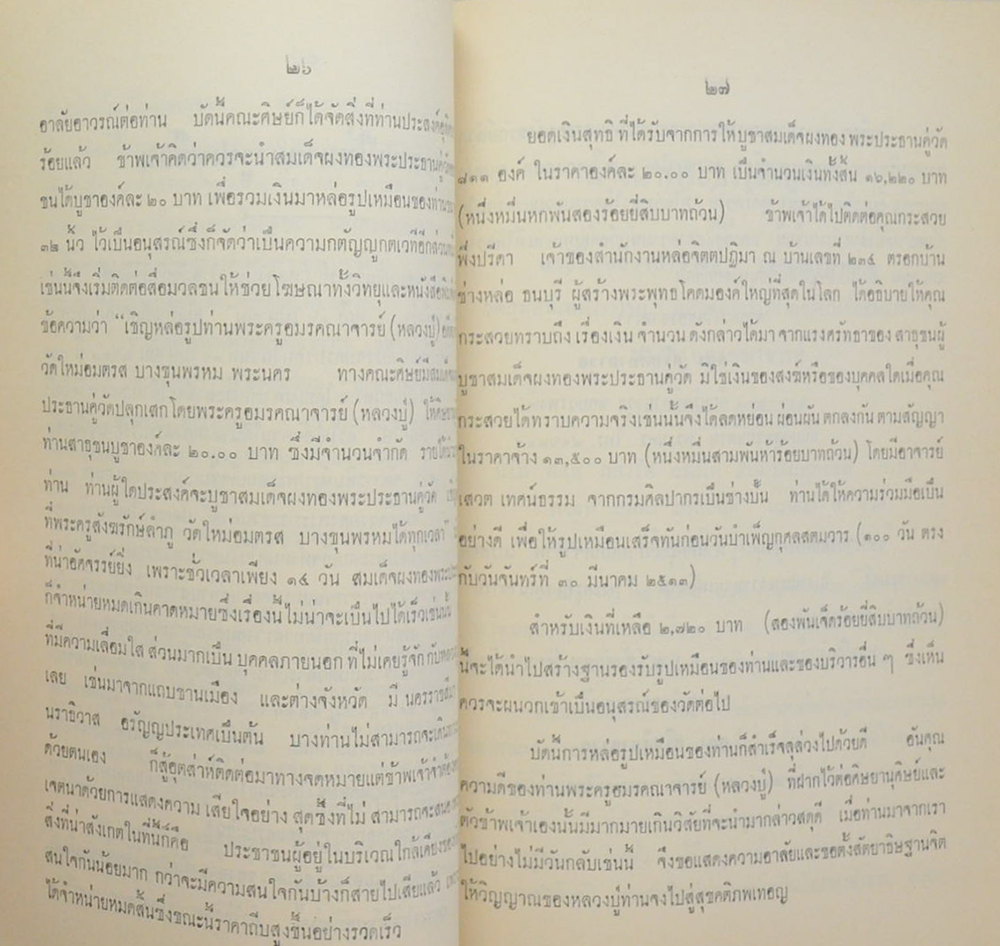 ๒๖
อาลัยอาวรณ์ต่อท่าน บัดนี้คณะศิษย์ก็ได้จัดสิ่งที่ท่านประสงค์
ร้อยแล้ว ข้าพเจ้าคิดว่าควรจะนำสมเด็จผงทองพระประธานคู่วัด
ชนได้บูชาองค์ละ ๒๐ บาท เพื่อรวมเงินมาหล่อรูปเหมือนของท่าน
๓๒ นิ้ว ไว้เป็นอนุสรณ์ซึ่งก็จัดว่าเป็นความกตัญญูกตเวทีอีกส่วน
เช่นนี้จึงเริ่มติดต่อสื่อมวลชนให้ช่วยโฆษณาทั้งวิทยุและหนังสือพิมพ์
ข้อความว่า “เชิญหล่อรูปท่านพระครูอมรคณาจารย์ (หลวงปู่)
วัดใหม่อมตรส บางขุนพรหม พระนคร ทางคณะศิษย์มีสมเด็จ
ประธานคู่วัดปลุกเสกโดยพระครูอมรคณาจารย์ (หลวงปู่) ให้
ท่านสาธุชนบูชาองค์ละ ๒๐.๐๐ บาท ซึ่งมีจำนวนจำกัด รายได้
ท่าน ท่านผู้ใดประสงค์จะบูชาสมเด็จผงทองพระประธานคู่วัด
ที่พระครูสังฆรักษ์ลำภู วัดใหม่อมตรส บางขุนพรหมได้ทุกเวลา”
ที่น่าอัศจรรย์ยิ่ง เพราะชั่วเวลาเพียง ๑๔ วัน สมเด็จผงทองพระ
ก็จำหน่ายหมดเกินคาดหมายซึ่งเรื่องนี้ไม่น่าจะเป็นไปได้เร็วเช่นนั้น
ที่มีความเลื่อมใส ส่วนมากเป็น บุคคลภายนอก ที่ไม่เคยรู้จัก กับ
เลย เช่นมาจากแถบชานเมือง และต่างจังหวัด มี นครราชสีมา
นราธิวาส อรัญญประเทศเป็นต้น บางท่านไม่สามารถจะเดินทาง
ด้วยตนเอง ก็สู้อุตส่าห์ติดต่อมาทางจดหมายแต่ข้าพเจ้าจำต้อง
เจตนาด้วยการแสดงความ เสียใจอย่าง สุดซึ้งที่ไม่ สามารถจะสนอง
สิ่งที่น่าสังเกตในที่นี้ก็คือ ประชาชนผู้อยู่ในบริเวณใกล้เคียงของ
สนใจกันน้อยมาก กว่าจะมีความสนใจกันบ้างก็สายไปเสียแล้ว
ได้จำหน่ายหมดสิ้นซึ่งขณะนี้ราคาถีบสูงขึ้นอย่างรวดเร็ว
๒๗
ยอดเงินสุทธิ ที่ได้รับจากการให้บูชาสมเด็จผงทอง พระประธานคู่วัด
๘๑๑ องค์ ในราคาองค์ละ ๒๐.๐๐ บาท เป็นจำนวนเงินทั้งสิ้น ๑๖,๒๒๐ บาท
(หนึ่งหมื่นหกพันสองร้อยยี่สิบบาทถ้วน) ข้าพเจ้าได้ไปติดต่อคุณกระสวย
พึ่งปรีดา เจ้าของสำนักงานหล่อจิตตปฏิมา ณ บ้านเลขที่ ๒๓๔ ตรอกบ้าน
ช่างหล่อ ธนบุรี ผู้สร้างพระพุทธโคดมองค์ใหญ่ที่สุดในโลก ได้อธิบายให้คุณ
กระสวยทราบถึง เรื่องเงิน จำนวน ดังกล่าวได้มา จากแรงศรัทธาของ สาธุชนผู้
บูชาสมเด็จผงทองพระประธานคู่วัด มิใช่เงินของสงฆ์หรือของบุคคลใดเมื่อคุณ
กระสวยได้ทราบความจริงเช่นนั้นจึงได้ลดหย่อน ผ่อนผัน ตกลงกัน ตามสัญญา
ในราคาจ้าง ๑๓,๕๐๐ บาท (หนึ่งหมื่นสามพันห้าร้อยบาทถ้วน) โดยมีอาจารย์
เสวต เทศน์ธรรม จากกรมศิลปากรเป็นช่างปั้น ท่านได้ให้ความร่วมมือเป็น
อย่างดี เพื่อให้รูปเหมือนเสร็จทันก่อนวันบำเพ็ญกุศลสตมวาร (๑๐๐ วัน ตรง
กับวันจันทร์ที่ ๓๐ มีนาคม ๒๕๑๓)
สำหรับเงินที่เหลือ ๒,๗๒๐ บาท (สองพันเจ็ดร้อยยี่สิบบาทถ้วน)
นี้จะได้นำไปสร้างฐานรองรับรูปเหมือนของท่านและของบริวารอื่น ๆ ซึ่งเห็น
ควรจะผนวกเข้าเป็นอนุสรณ์ของวัดต่อไป
บัดนี้การหล่อรูปเหมือนของท่านก็สำเร็จลุล่วงไปด้วยดี อันคุณ
ความดีของท่านพระครูอมรคณาจารย์ (หลวงปู่) ที่ฝากไว้ต่อศิษยานุศิษย์และ
ตัวข้าพเจ้าเองนั้นมีมากมายเกินวิสัยที่จะนำมากล่าวสดุดี เมื่อท่านมาจากเรา
ไปอย่างไม่มีวันกลับเช่นนี้ จึงขอแสดงความอาลัยและขอตั้งสัตยาธิษฐานจิต
ให้วิญญาณของหลวงปู่ท่านจงไปสู่สุขคติภพเทอญ